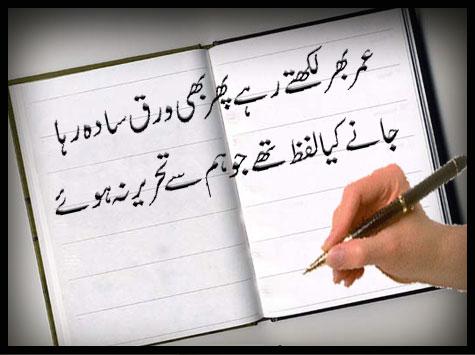 عمر بھر لکھتے رہے پھر بھی ورق سادہ رہا
جانے کیا لفظ تھے جو ہم سے تحریر نہ ہوئے